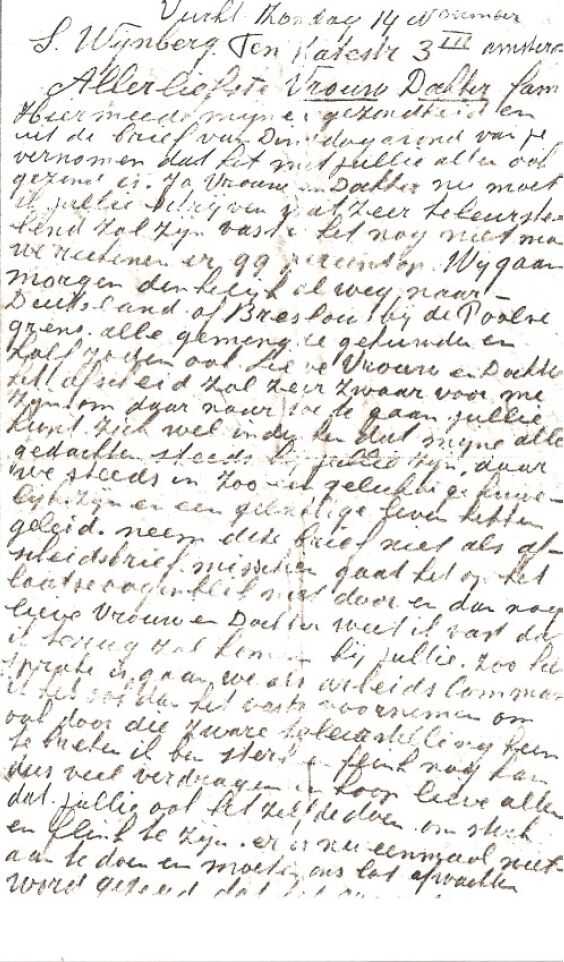 Vucht Zondag 14 November
S. Wijnberg Ten Katestr 3 III Amster
Allerliefste Vrouw Dochter fam
Hiermeede mijne gezondheid en
uit de brief van Dinsdagavond van je
vernomen dat het met jullie allen ook
gezond is. Ja Vrouw en Dochter nu moet
ik jullie schrijven wat zeer teleurste
lend zal zijn vast het nog niet ma
we reekenen er 99 op. Wij gaan
morgen denkelijk al weg naar
Duitsland of Breslau bij de Poolse
grens. alle gemengde gehuwden en
half Joden ook lieve Vrouw en Dochter
het afscheid zal zeer zwaar voor me
zijn om daar naar toe te gaan jullie
kunt zich wel indenken dat mijne alle
gedachten steeds bij jullie zijn, daar
we steeds in zoo een gelukkige huwe-
lijk zijn en een gelukkige leven hebben
geleid. neem deze brief niet als af-
scheidsbrief misschien gaat het op het
laatse oogenblik niet door en dan nog
lieve Vrouw en Dochter weet ik vast dat
ik terug zal komen bij jullie. Zoo
sprake is gaan we als arbeids Comman
dus dan het vaste voornemen om
ook door die zware teleurstelling heen
te breken ik ben sterk en flink nog kan
dus veel verdragen en hoop lieve allen
dat jullie ook het zelfde doen om sterk
en flink te zijn. er is nu eenmaal niet
aan te doen en moeten ons lot afwachten
word gezegd dat het